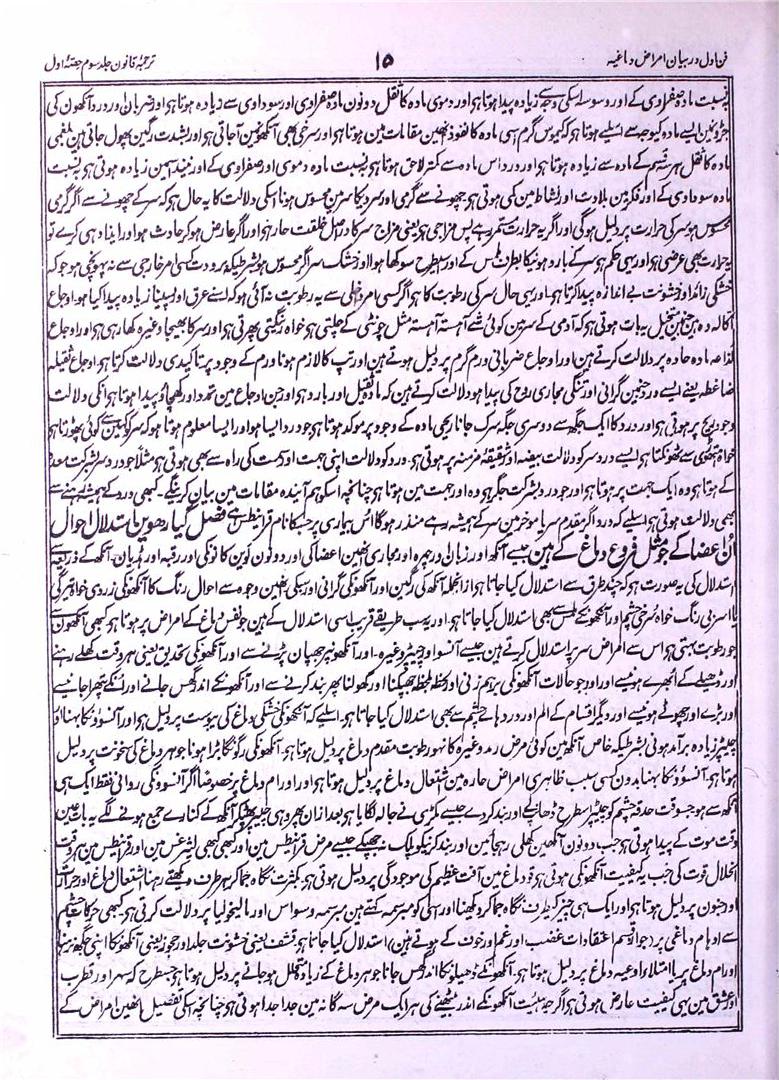 فن اول در بیان امراض دماغیہ ۱۵ ترجمۂ قانون جلد سوم حصۂ اول
بہ نسبت مادہ صفراوی کے اور وسوسہ اسکی وجہ سے زیادہ پیدا ہوتا ہی اور دموی مادہ کا ثقل دونون مادہ صفراوی اور سوداوی سے زیادہ ہوتا ہی اور ضربان و درد آنکھون کی
جڑونمین ایسے مادہ کیوجہ سے اسلیے ہوتا ہی کہ کیموس گرم اسی مادہ کا نفوذ انھین مقامات مین ہوتا ہی اور سرخی بھی آنکھونمین آجاتی ہی اور بشدت رگین پھول جاتی ہین بلغمی
مادہ کا ثقل ہر قسم کے مادہ سے زیادہ ہوتا ہی اور درد اس مادہ سے کمتر لاحق ہوتا ہی بہ نسبت مادہ دموی اور صفراوی کے اور نیند اسمین زیادہ ہوتی ہی بہ نسبت
مادہ سوداوی کے اور فکر مین بلادت اور نشاط مین کمی ہوتی ہی چھونے سے گرمی اور سردی کا سر مین محسوس ہونا اسکی دلالت کا یہ حال ہی کہ سر کے چھونے سے اگر گرمی
محسوس ہو سر کی حرارت پر دلیل ہوگی اور اگر یہ حرارت مستمر رہے پس مزاجی ہی یعنی مزاج سر کا در اصل خلقت حار ہی اور اگر عارض ہو کر حادث ہو اور ایذا دہی کرے تو
یہ حرارت بھی عرضی ہی اور یہی حکم ہی سر کے بارد ہونیکا بطریق لمس کے اور اسیطرح سوکھا ہوا اور خشک سر اگر محسوس ہو بشرطیکہ برودت کسی امر خارجی سے نہ پہونچی ہو جو کہ
خشکی زائد اور خشونت بے اندازہ پیدا کرتا ہی اور یہی حال سر کی رطوبت کا ہی اگر کسی امر داخلی سے یہ رطوبت نہ آئی ہو کہ اسنے عرق اور پسینا زیادہ پیدا کیا ہو اوجاع
اکالہ وہ ہین جنمین متخیل یہ بات ہوتی ہی کہ آدمی کے سر مین کوئی شے آہستہ آہستہ مثل چونٹی کے چلتی ہی خواہ رینگتی پھرتی ہی اور سر کا بھیجا وغیرہ کھا رہی ہی اور اوجاع
لذاعہ مادہ حادہ پر دلالت کرتے ہین اور اوجاع ضربانی ورم گرم پر دلیل ہوتے ہین اور تپ کا لازم ہونا ورم کے وجود پر تاکیدی دلالت کرتا ہی اوجاع ثقیلہ
ضاغطہ یعنے ایسے درد جنمین گرانی اور تنگی مجاری روح کی پیدا ہو دلالت کرتے ہین کہ مادہ ثقیل اور بارد ہی اور جن اوجاع مین تمدد اور کھچاؤ پیدا ہوتا ہی انکی دلالت
وجود ریح پر ہوتی ہی اور درد کا ایک جگھ سے دوسری جگہ سرک جانا ریحی مادہ کے وجود پر موکد ہوتا ہی جو درد ایسا ہو اور ایسا معلوم ہوتا ہو کہ سر کو جیسے کوئی پھوڑتا ہی
خواہ ہتھوڑی سے ٹھونکتا ہی ایسے درد سر کو دلالت بیضہ اور شقیقہ مزمنہ پر ہوتی ہی۔ درد کو دلالت اپنی جہت اور سمت کی راہ سے بھی ہوتی ہی مثلا جو درد سر بشرکت معدہ
کے ہوتا ہی وہ ایک جہت پر ہوتا ہی اور جو درد بشرکت جگر ہی وہ اور جہت مین ہوتا ہی چنانچہ اسکو ہم آیندہ مقامات مین بیان کرینگے۔ کبھی درد کے ہمیشہ رہنے سے
بھی دلالت ہوتی ہی اسلیے کہ درد اگر مقدم سر یا موخر مین سر کے ہمیشہ رہے منذر ہوگا اس بیماری پر جسکا نام قرانیطس ہی فصل گیارھوین استدلال احوال
اُن اعضا کے جو مثل فروع دماغ کے ہین جیسے آنکھ اور زبان و چہرہ اور مجاری انھین اعضا کی اور دونون لوزتین کا توکی اور رقبہ اور شریان۔ آنکھ کے ذریعہ سے
استدلال کی یہ صورت ہی کہ چند طرق سے استدلال کیا جاتا ہی از انجملہ آنکھ کی رگین اور آنکھونکی گرانی اور سبکی بعین وجوہ سے احوال رنگ کا آنکھونکی زردی خواہ تیرگی
یا سربی رنگ خواہ سرخی چشم اور آنکھونکے لمس سے بھی استدلال کیا جاتا ہی۔ اور یہ سب طریقے قریب اسی استدلال کے ہین جو نفس دماغ کے امراض پر ہوتا ہی کبھی آنکھون سے
جو رطوبت بہتی ہی اس سے امراض سر پر استدلال کرتے ہین جیسے آنسو اور چیپڑ وغیرہ۔ اور آنکھونپر جھپان پڑنے سے اور آنکھونکی تحدیق یعنی ہر وقت کھلے رہنے
اور ڈھیلے کے ابھرے ہونیسے اور اور جو حالات آنکھونکی برہم زنی اور لحظہ لحظہ جھپکنا اور کھولنا پھر بند کرنے سے اور آنکھونکے اندر گھس جانے اور انکے پتھرا جانیسے
اور بڑے اور چھوٹے ہونیسے اور دیگر اقسام کے الم اور درد ہاے چشم سے بھی استدلال کیا جاتا ہی۔ اسلیے کہ آنکھونکی خشکی دماغ کی یبوست پر دلیل ہی اور آنسوونکا بہنا اور
چیپڑ زیادہ برآمد ہونی بشرطیکہ خاص آنکھین کوئی مرض رمد وغیرہ کا نہو رطوبت مقدم دماغ پر دلیل ہوتا ہی۔ آنکھونکی رگونکا بڑا ہونا جوہر دماغ کی سخونت پر دلیل
ہوتا ہی۔ آنسوونکا بہنا بدون کسی سبب ظاہری امراض حارہ مین اشتعال دماغ پر دلیل ہوتا ہی اور اورام دماغ پر خصوصاً اگر آنسوونکی روانی فقط ایک ہی
آنکھ سے ہو جسوقت حدقہ چشم کو چیپڑ اسطرح ڈھانپ لے اور بند کر دے جیسے مکڑی نے جالہ لگایا ہی بعد ازان پھر وہی چیپڑ چھوٹکر آنکھ کے کنارے جمع ہونے لگے یہ بات عین
وقت موت کے پیدا ہوتی ہی جب دونون آنکھین کھلی رہجائین اور بند کرنیکو پلک نہ جھپکے جیسے مرض قرانیطس مین اور کبھی کبھی لیثرغس مین اور قرانیطس مین ہر وقت
انحلال قوت کی جب یہ کیفیت آنکھونکی ہوتی ہی تو دماغ مین آفت عظیم کی موجودگی پر دلیل ہوتی ہی۔ بکثرت نگاہ جما کر ہر طرف دیکھتے رہنا اشتعال دماغ اور حرارت
اور جنون پر دلیل ہوتا ہی اور ایک ہی چیز کیطرف نگاہ جما کر دیکھنا اور اسی کو مبرسمہ کہتے ہین مبرسمہ وسواس اور مالیخولیا پر دلالت کرتی ہی۔ کبھی حرکات چشم
سے اوہام دماغی پر (جو از قسم اعتقادات غضب اور غم اور خوف کے ہوتے ہین) استدلال کیا جاتا ہی۔ قشف یعنی خشونت جلد اور جحوظ یعنی آنکھونکا اپنی جگھ نر رہنا
اورام دماغ پر یا امتلاء اوعیہ دماغ پر دلیل ہوتا ہی۔ آنکھونکے ڈھیلونکا اندر گھس جانا جوہر دماغ کے زیادہ تحلل ہو جانے پر دلیل ہوتا ہی جسطرح کہ سہر اور قطرب
اور عشق مین یہی کیفیت عارض ہوتی ہی اگرچہ ہیئت آنکھونکے اندر بیٹھنے کی ہر ایک مرض سہ گانہ مین جدا جدا ہوتی ہی چنانچہ اسکی تفصیل انھین امراض کے